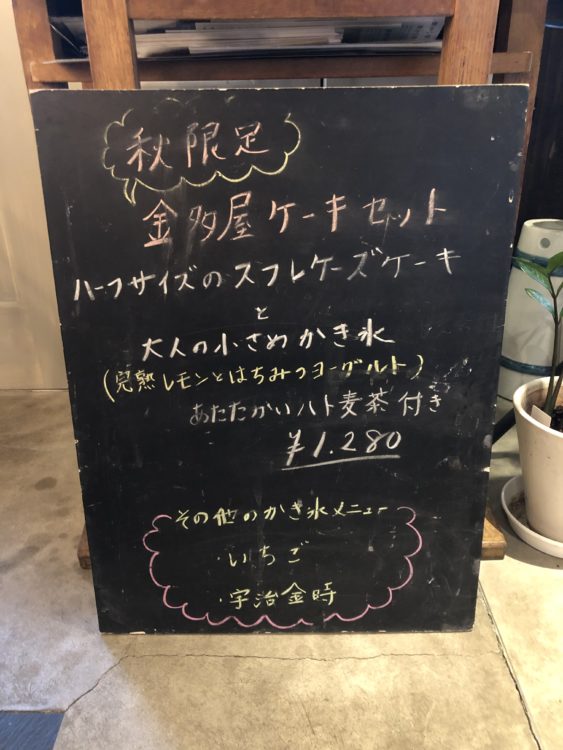 秋限定
金多屋ケーキセット
ハーフサイズのスフレケーズケーキ
と
大人の小さめかき氷
(完熟レモンとはちみつヨーグルト)
あたたかいハト麦茶付き
¥1.280
その他のかき氷メニュー
・いちご
・宇治金時